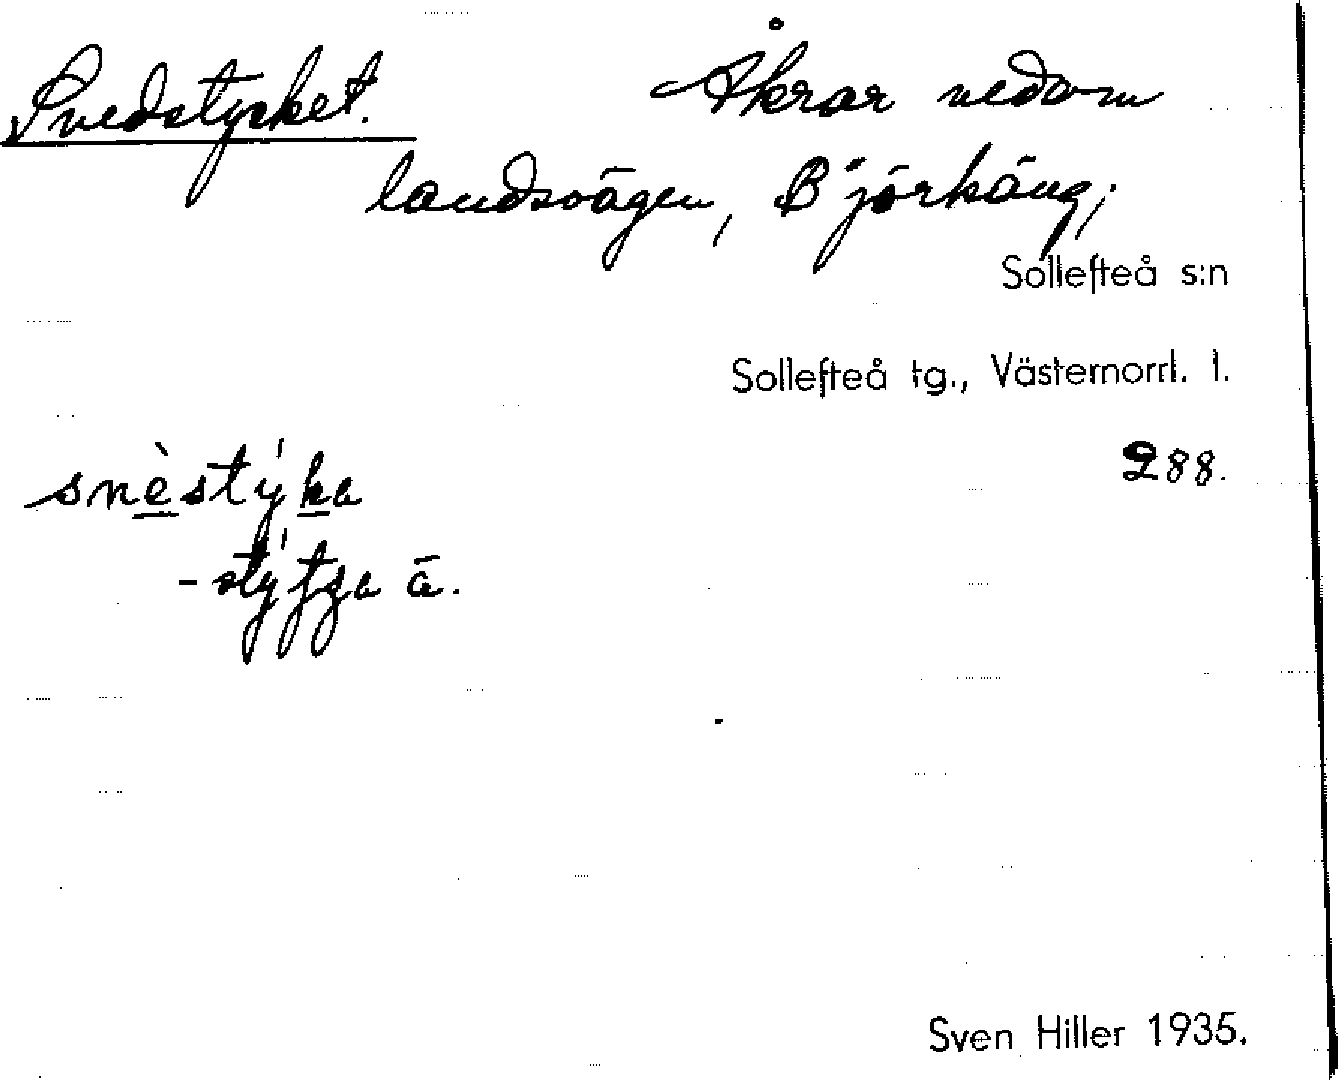 Svedstycket. Åkrar nedom
landsvägen, Björkäng;
Sollefteå s:n
Sollefteå tg., Västernorrl. l.
288.
Sven Hiller 1935.